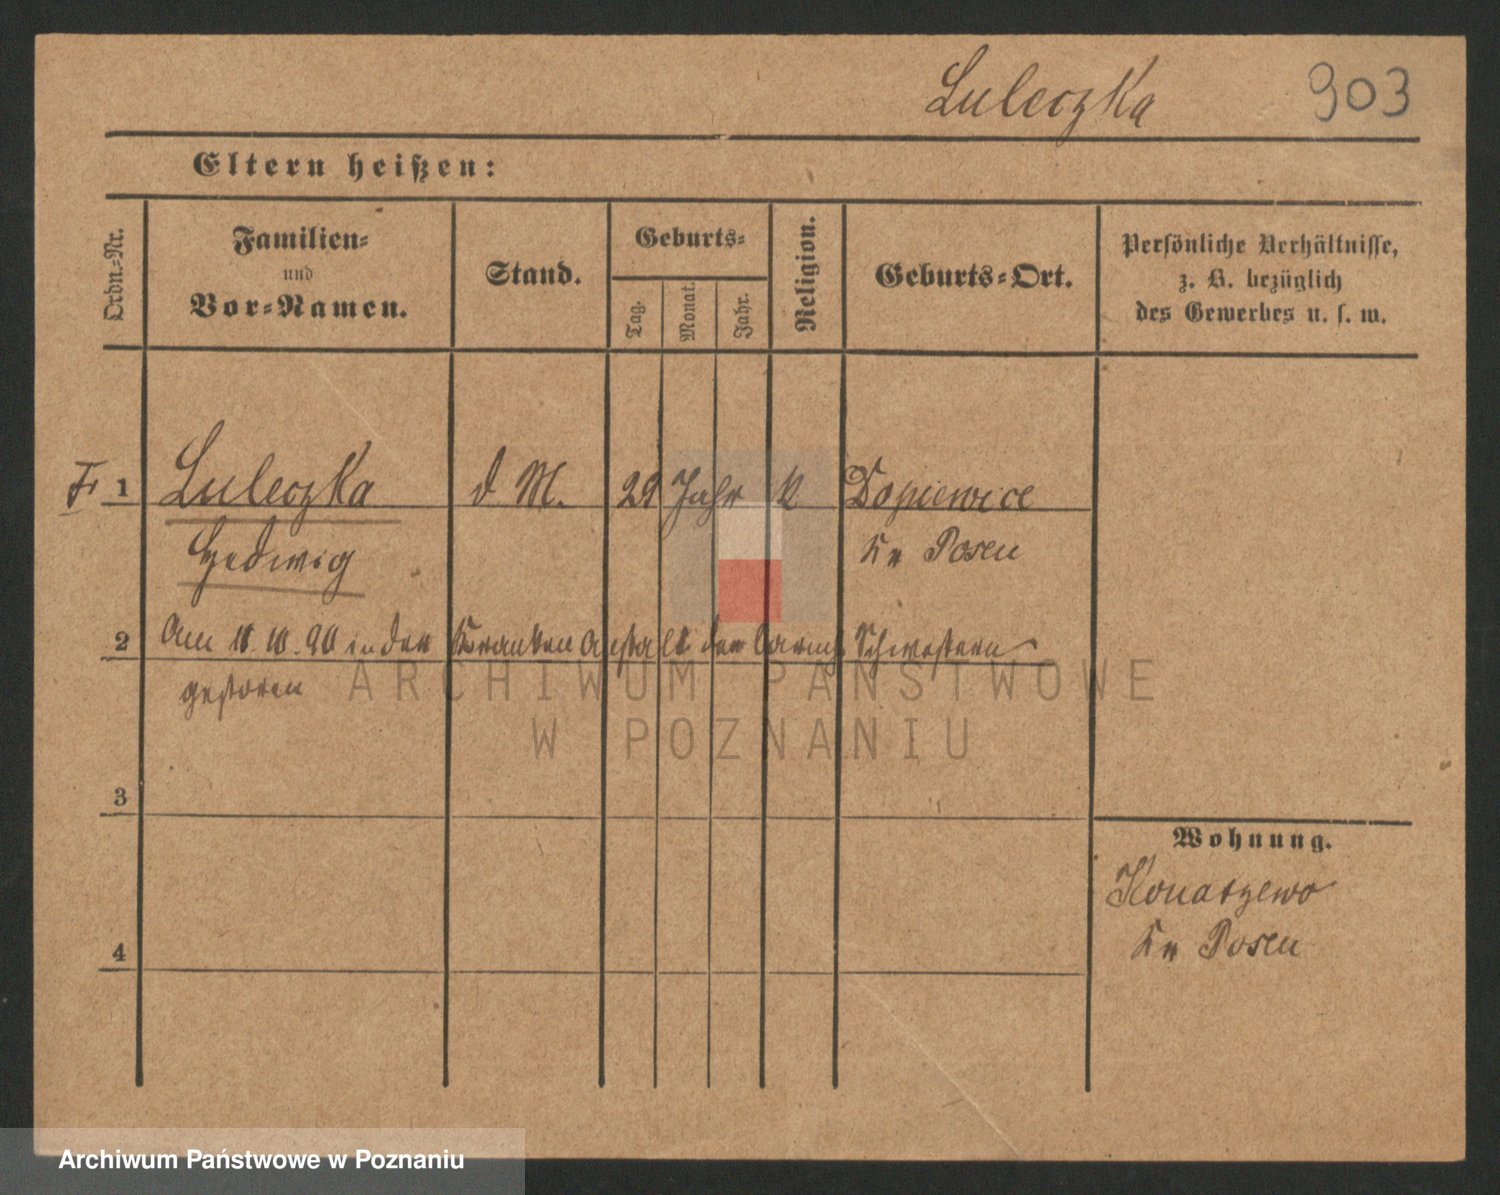 Luleczka 903
Eltern heißen:
Ordn.-Nr.
Familien-
und
Vor-Namen.
Stand.
Geburts-
Tag.
Monat.
Jahr.
Religion.
Geburts-Ort.
Persönliche Verhältnisse,
z. B. bezüglich
des Gewerbes u. s. w.
1 Luleczka d M. 29 Jahr k Dopiewice
Hedwig Kr Posen
2 Am 10.90 in der Kranken Anstalt der barmh Schwestern
gestorben
3
4
Wohnung.
Konarzewo
Kr Posen
ARCHIWUM PAŃSTWOWE
W POZNANIU
Archiwum Państwowe w Poznaniu